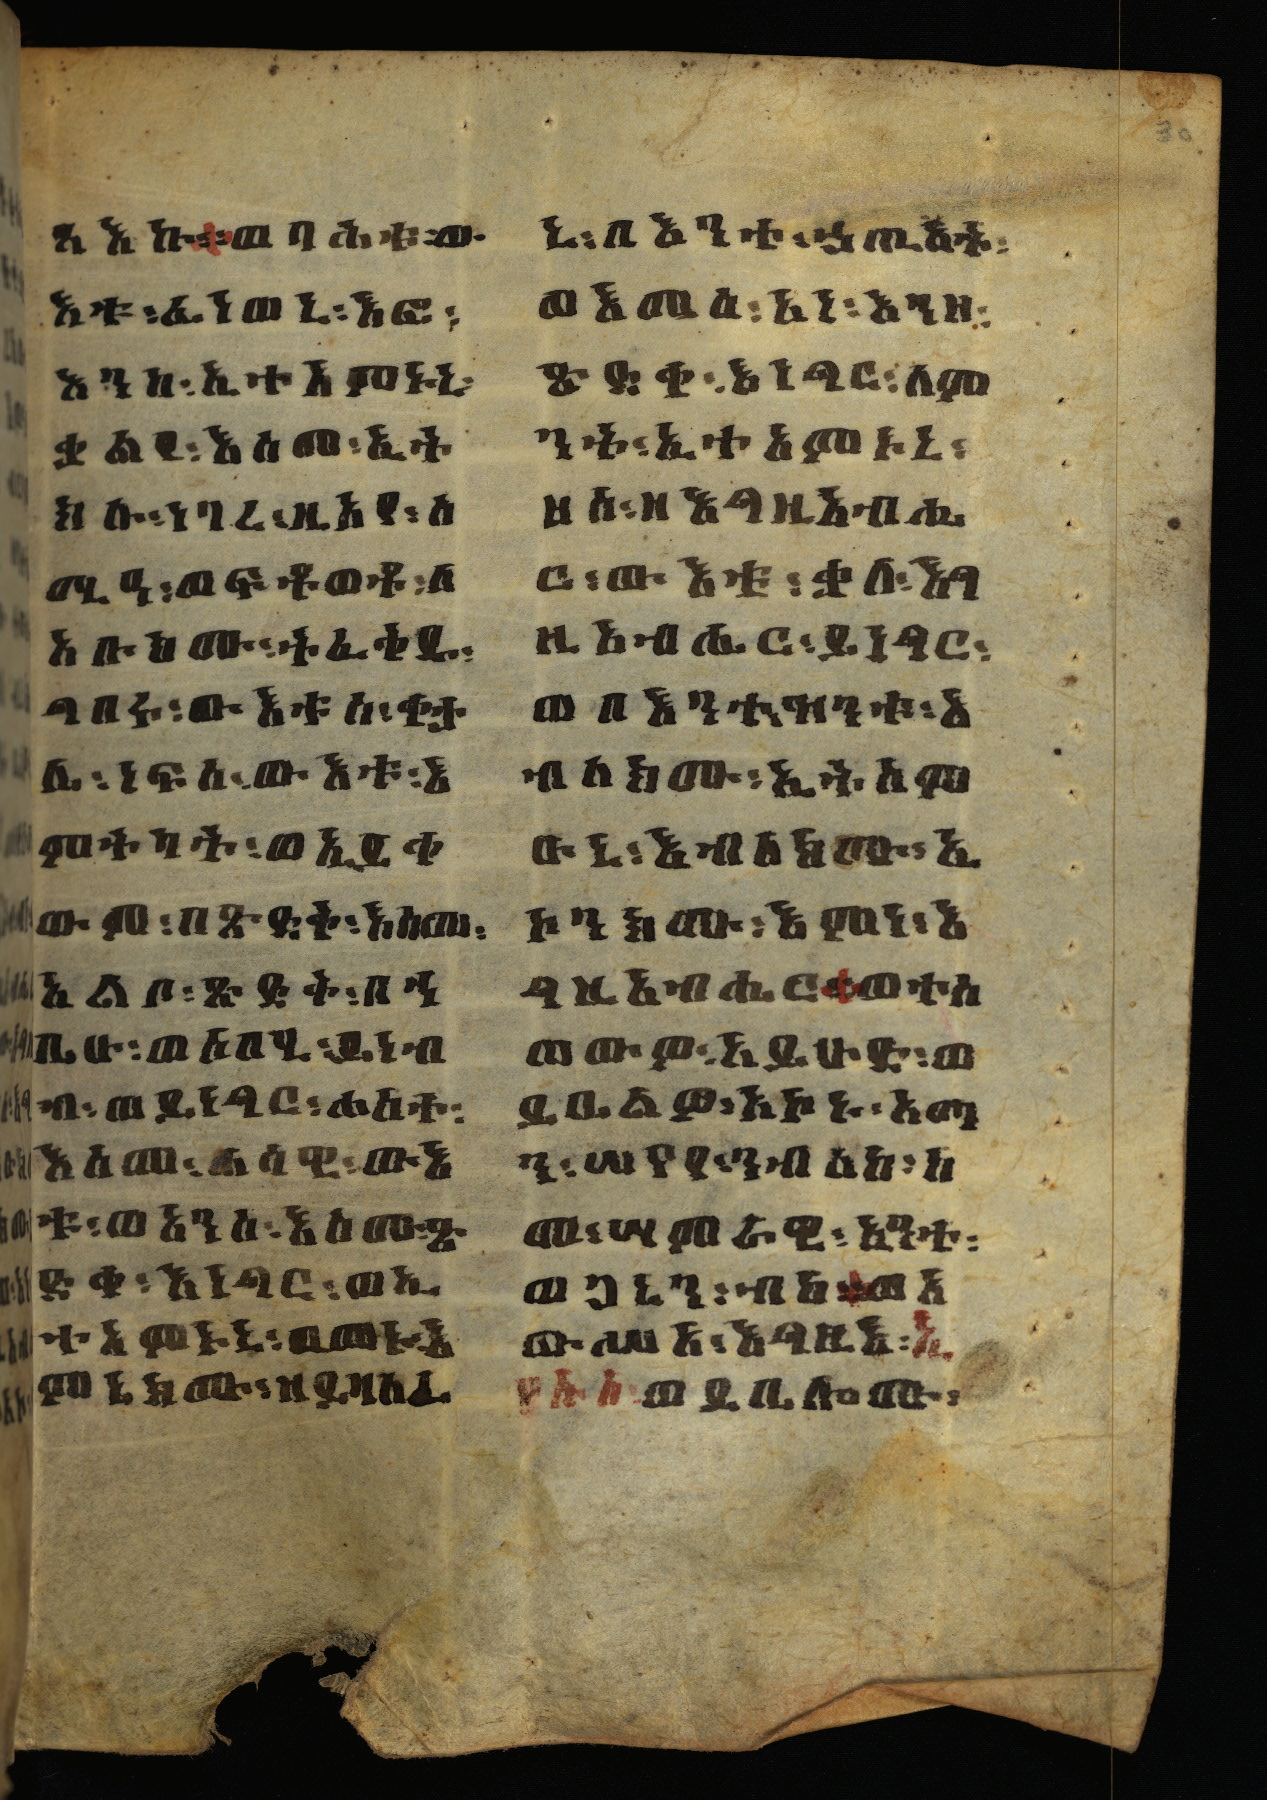 ጻእኩ።ወባሕቱ፡ው
እቱ፡ፈነወኒ፡እፎ፡
እንከ፡ኢተአምኑኒ
ቃልየ፡እስመ፡ኢት
ክሉ፡ነገረ፡ዚአየ፡ሰ
ሚዓ፡ወፍትወቶ፡ለ
አቡክሙ፡ትፈቅዱ፡
ግበሩ፡ውእቱሰ፡ቀታ
ሌ፡ነፍስ፡ውእቱ፡እ
ምትካት፡ወኢይቀ
ውም፡በጽድቅ፡እስመ፡
አልቦ፡ጽድቅ፡በኀ
ቤሁ፡ወሰበሂ፡ይነብ
ብ፡ወይነግር፡ሐሰተ፡
እስመ፡ሐሳዊ፡ውእ
ቱ፡ወአንሰ፡እስመ፡ጽ
ድቀ፡እነግር፡ወኢ
ተአምኑኒ፡ወመኑ፡እ
ምኔክሙ፡ዘይዛለፈ
ኒ፡በእንተ፡ኃጢአት፡
ወእመሰ፡አነ፡እንዘ፡
ጽድቀ፡እነግር፡ለም
ንት፡ኢተአምኑኒ፡
ዘሰ፡ዘእግዚአብሔ
ር፡ውእቱ፡ቃለ፡እግ
ዚአብሔር፡ይነግር፡
ወበእንተ፡ዝንቱ፡እ
ብለክሙ፡ኢትአም
ኑኒ፡እብለክሙ፡ኢ
ኮንክሙ፡እምነ፡እ
ግዚአብሔር።ወተሰ
ጠውዎ፡አይሁድ፡ወ
ይቤልዎ፡አኮኑ፡አማ
ን፡ሠናየ፡ንብለከ፡ከ
መ፡ሣምራዊ፡አንተ፡
ወጋኔን፡ብከ።ወአ
ውሥአ፡እግዚእ፡ኢ
የሱስ፡ወይቤሎሙ፡
30